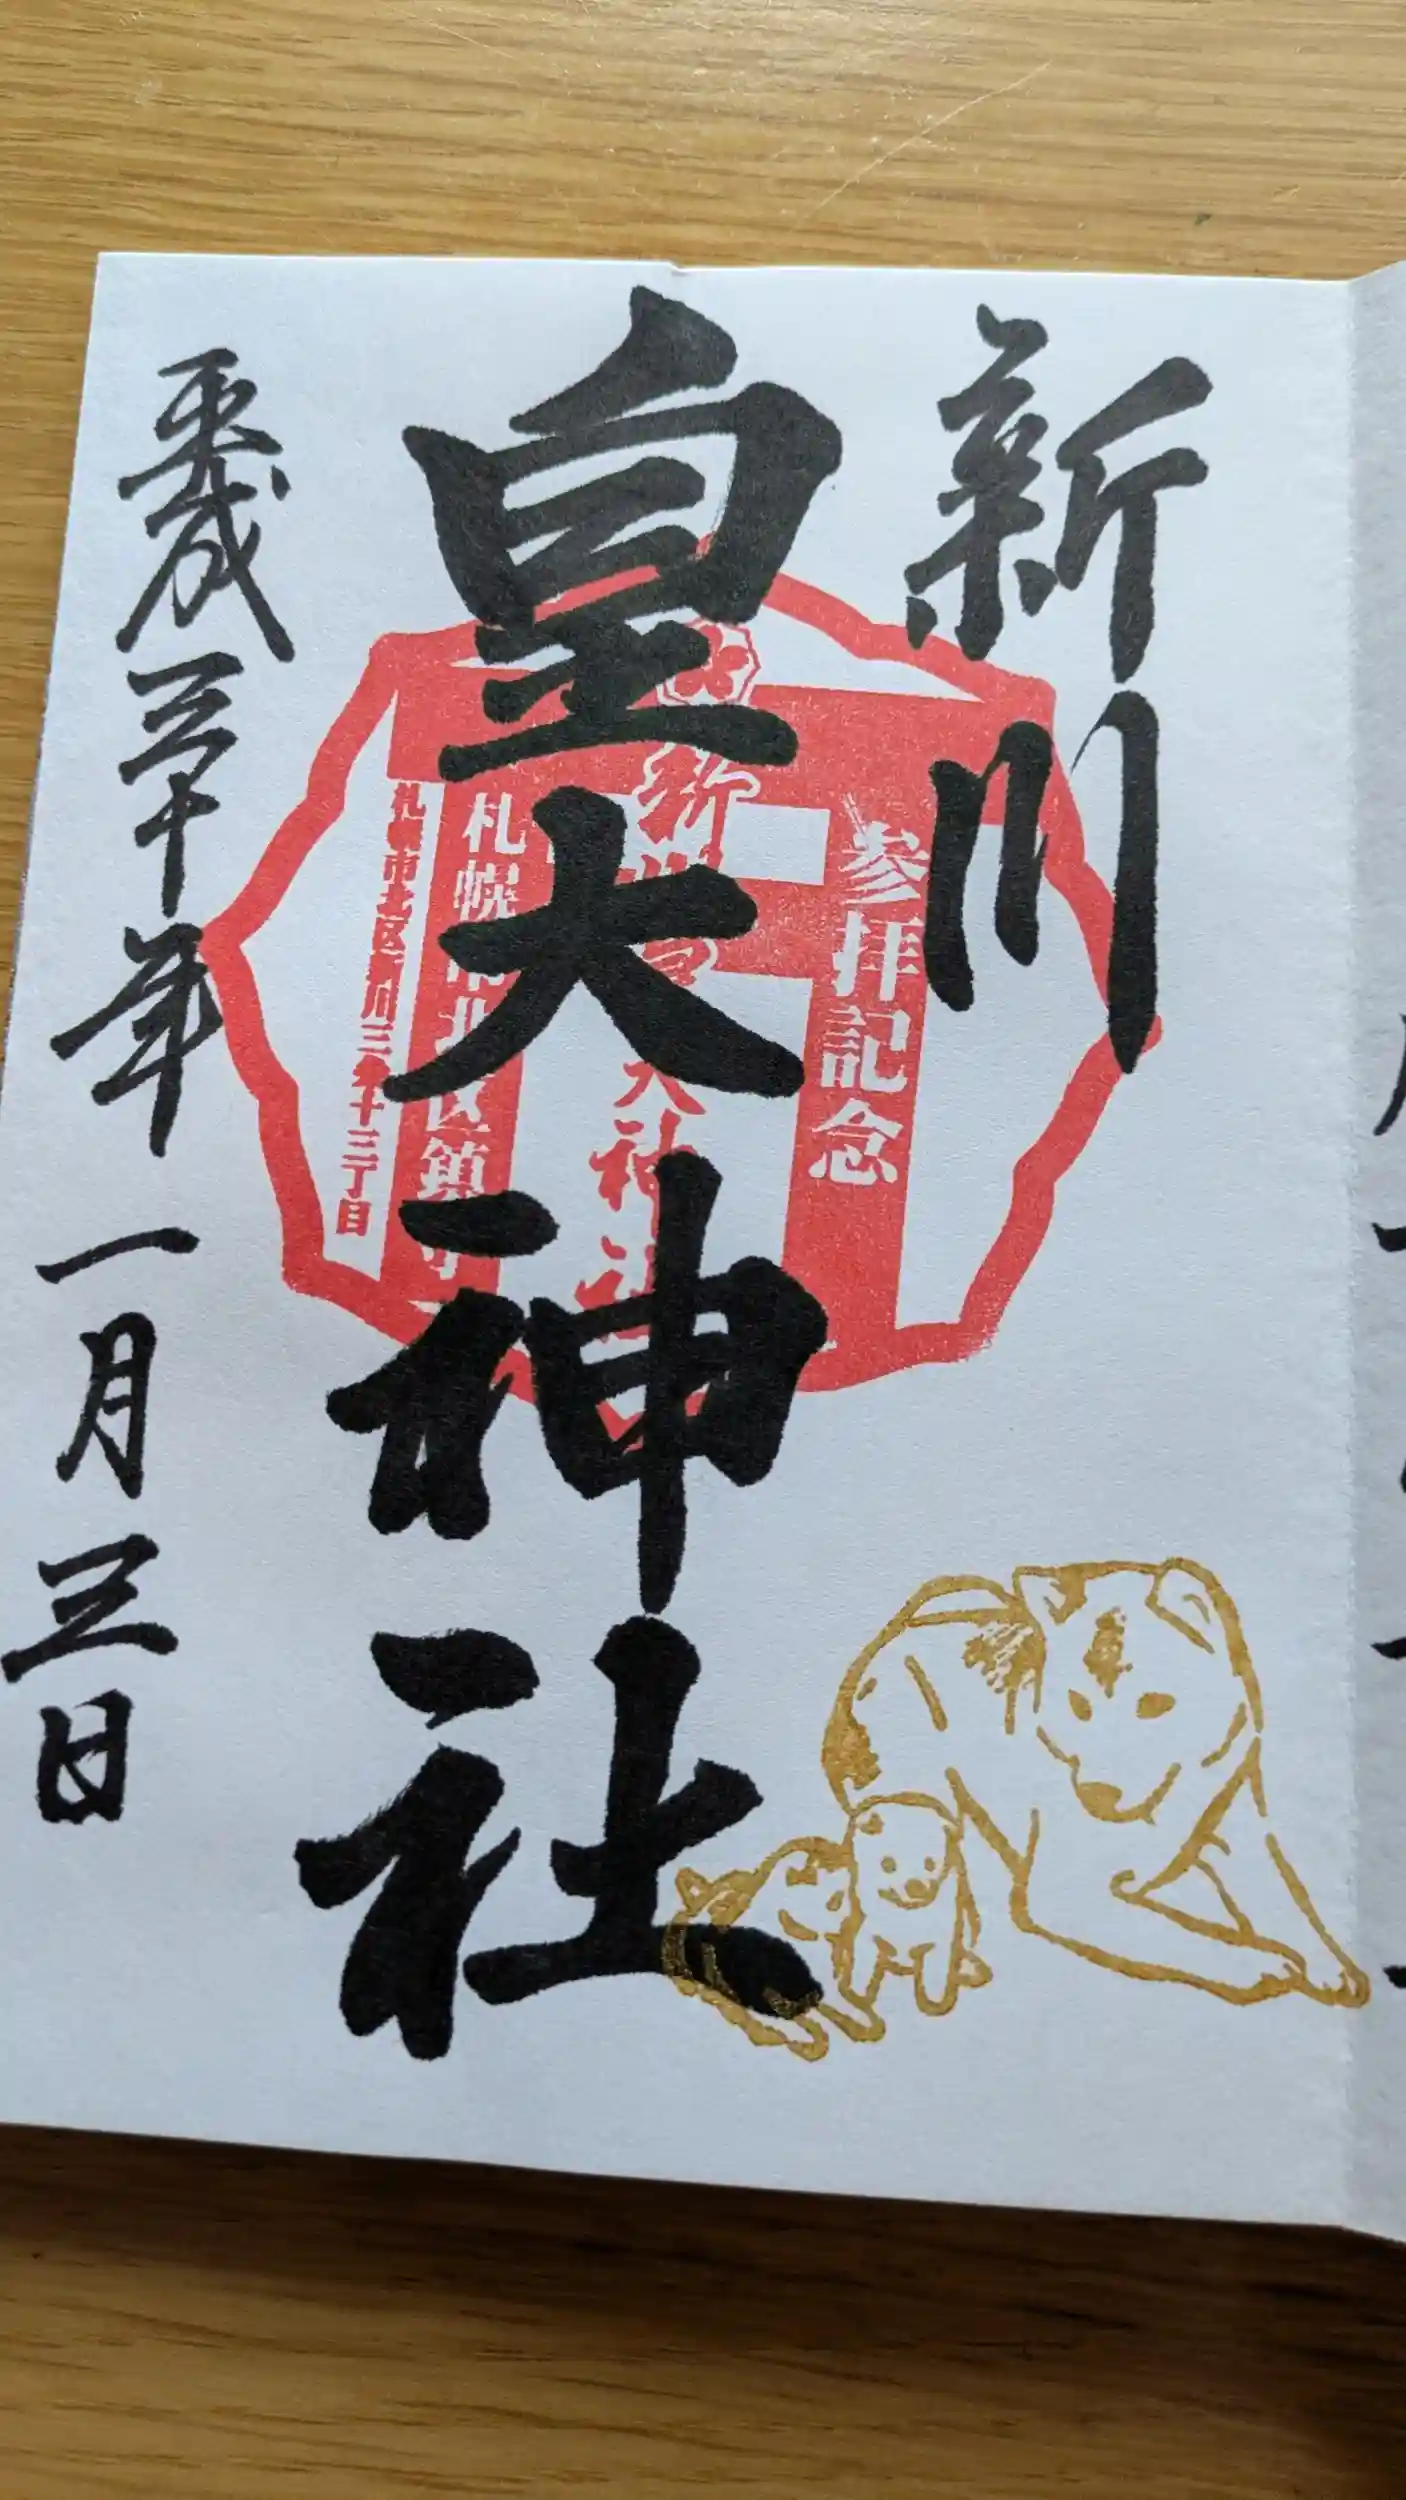 新川
皇大神社
平成三十年一月三日
参拝記念
新川皇大神社
札幌市北区鎮守
札幌市北区新川三条十三丁目